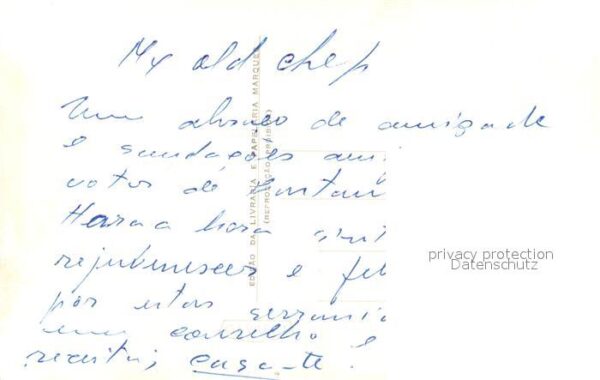 My old chep
Um abraço de amizade
e saudações ami
votos de
Hora a hora sint
rejuvenescer e fel
por estas serrania
um conselho e
receita; casa-te!
EDIÇÃO DA LIVRARIA E PAPELARIA MARQUES
(REPRODUÇÃO PROIBIDA)
privacy protection
Datenschutz